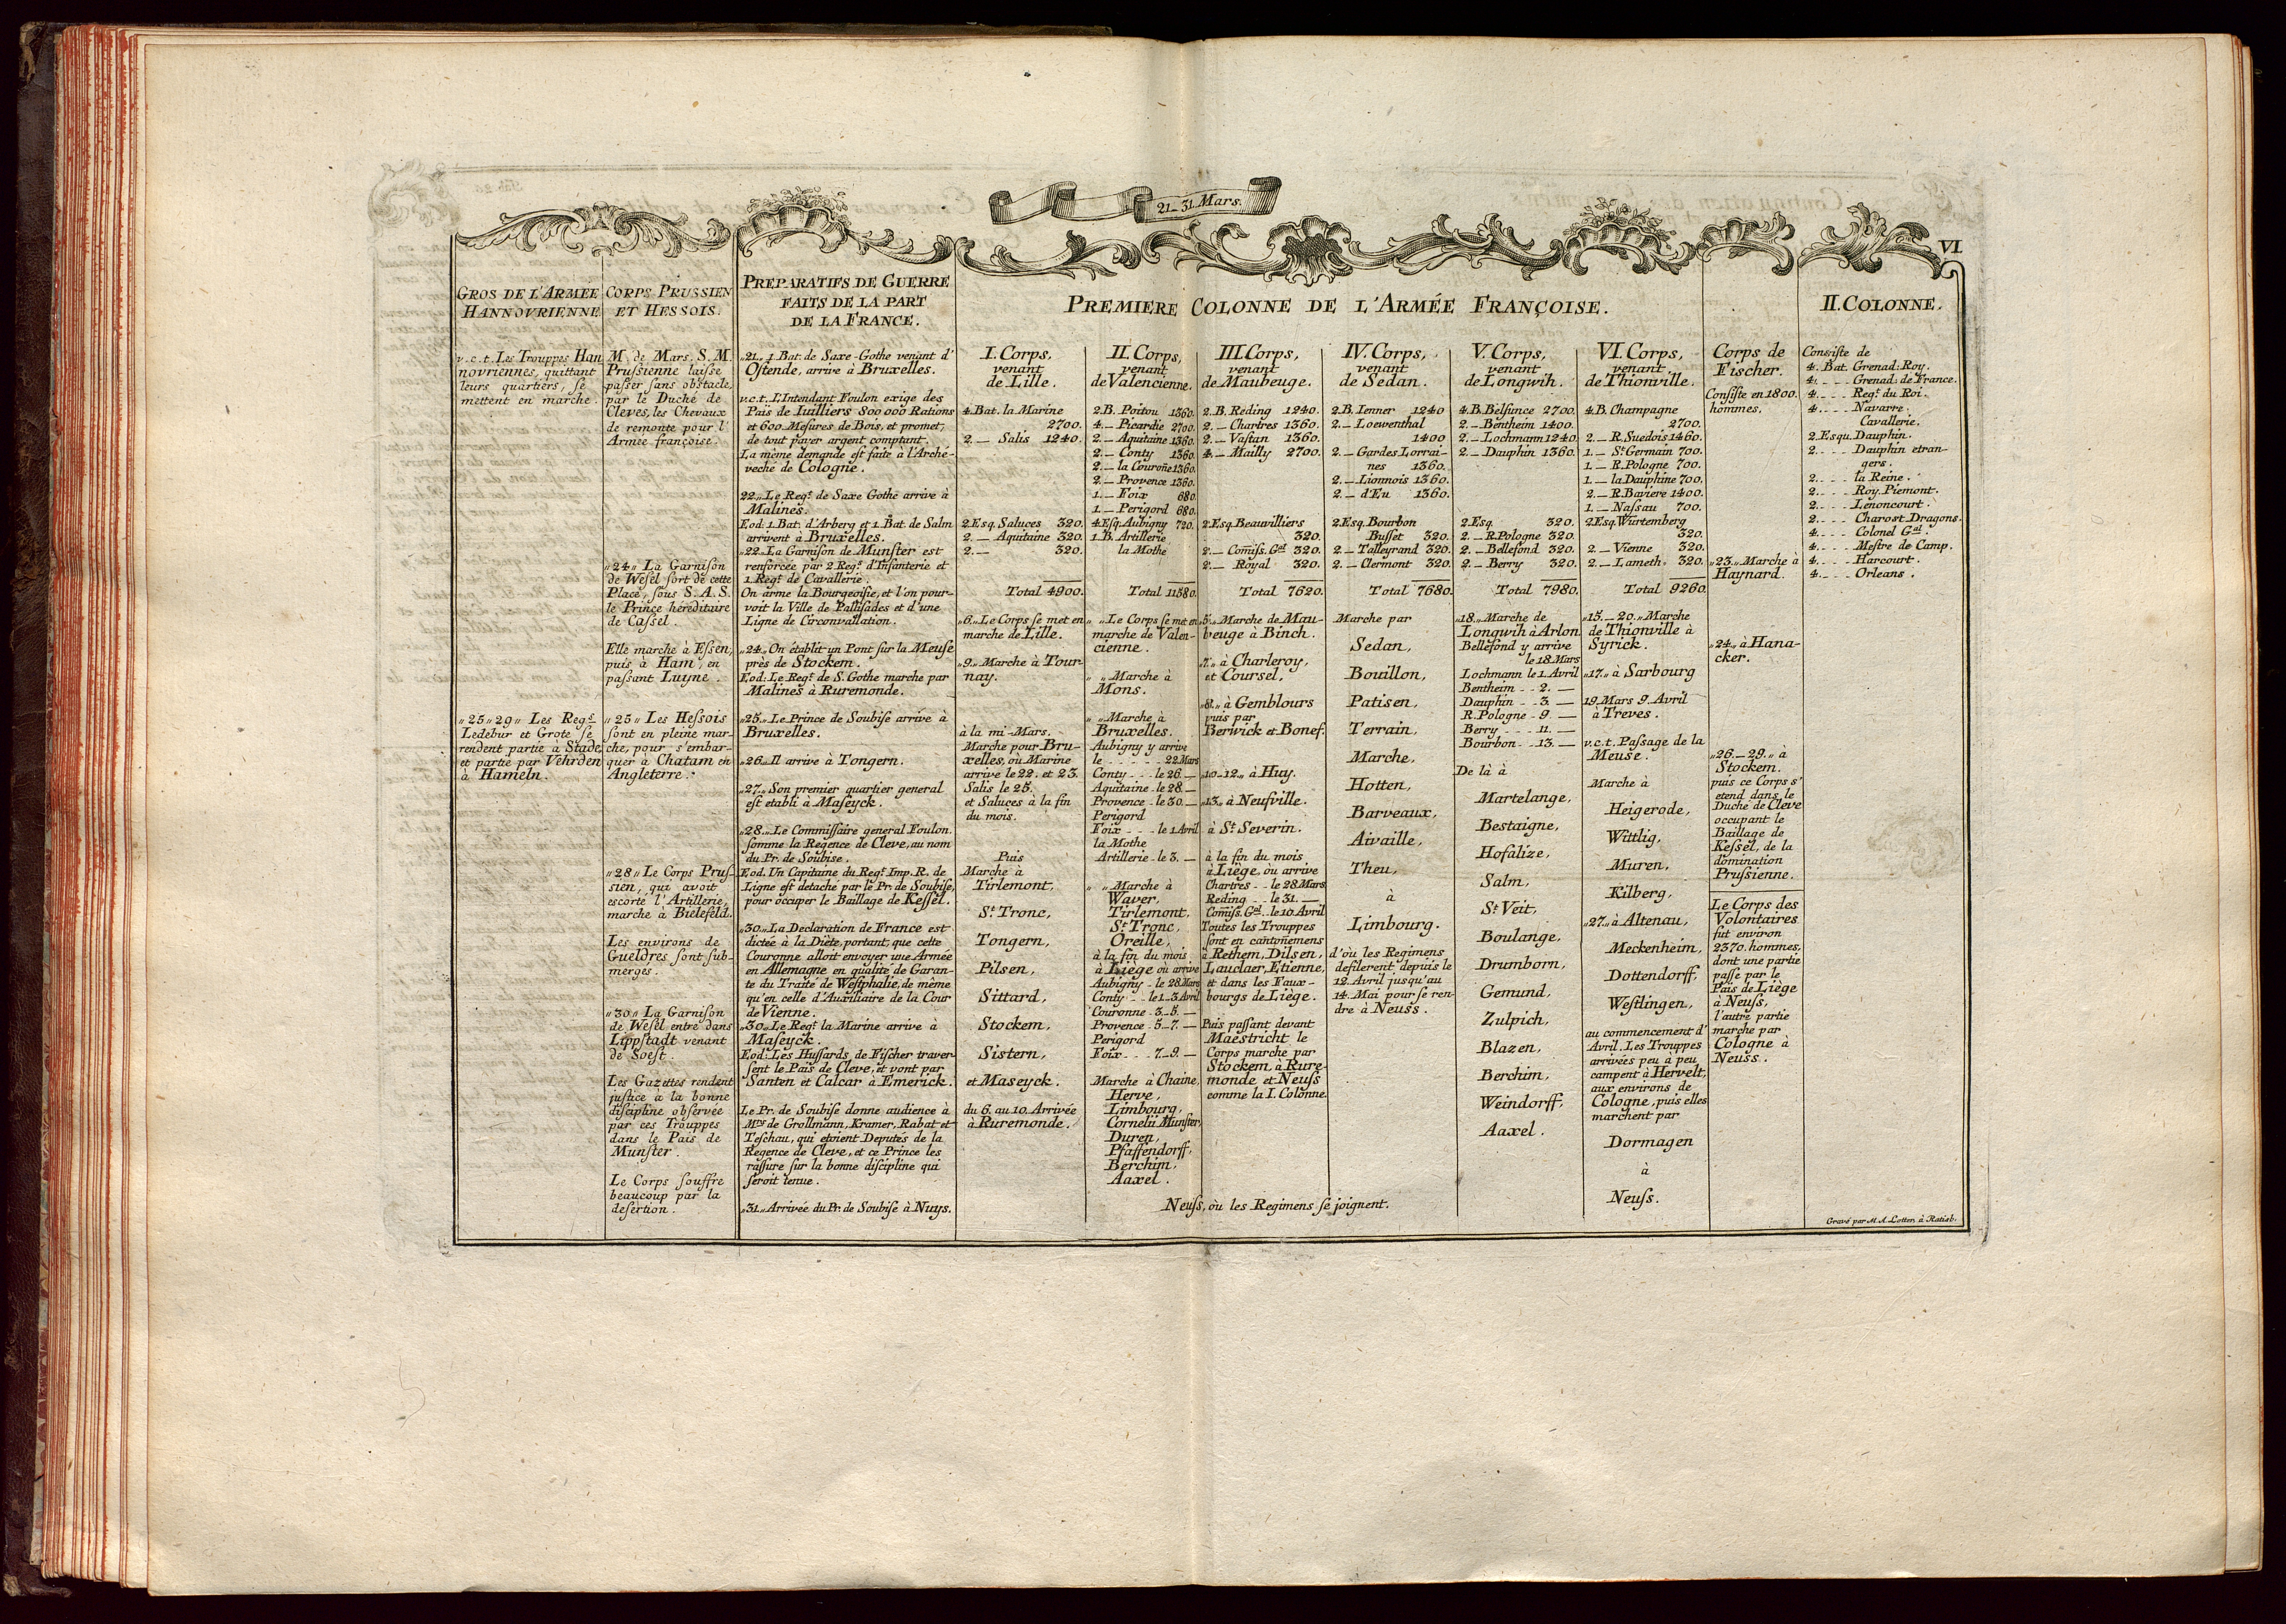 21_31. Mars.
VI
GROS DE L'ARMÉE
HANNOVRIENNE
v.c.t. Les Trouppes Han
novriennes, quittant
leurs quartiers, se
mettent en marche.
„25„29„ Les Regs.
Ledebur et Grote se
rendent partie à Stade,
et partie par Vehrden
à Hameln.
CORPS PRUSSIEN
ET HESSOIS.
M. de Mars. S. M.
Prussienne laisse
passer sans obstacle,
par le Duché de
Cleves, les Chevaux
de remonte pour l'
Armée françoise.
„24„ La Garnison
de Wesel sort de cette
Place, sous S. A. S.
le Prince héréditaire
de Cassel.
Elle marche à Essen,
puis à Ham, en
passant Luyne.
„25„ Les Hessois
sont en pleine mar-
che, pour s'embar-
quer à Chatam en
Angleterre.
„28„ Le Corps Prus-
sien, qui avoit
escorté l'Artillerie,
marche à Bielefeld.
Les environs de
Gueldres sont sub-
mergés.
„30„ La Garnison
de Wesel entre dans
Lippstadt venant
de Soest.
Les Gazettes rendent
justice à la bonne
discipline observée
par ces Trouppes
dans le Païs de
Munster.
Le Corps souffre
beaucoup par la
desertion.
PREPARATIFS DE GUERRE
FAITS DE LA PART
DE LA FRANCE.
„21„ 1. Bat. de Saxe-Gothe venant d'
Ostende, arrive à Bruxelles.
v.c.t. L'Intendant Foulon exige des
Païs de Iuilliers 800 000 Rations
et 600 Mesures de Bois, et promet,
de tout païer argent comptant.
La même demande est faite à l'Arché-
veché de Cologne.
22„ Le Regt. de Saxe Gothe arrive à
Malines.
Eod: 1. Bat. d'Arberg et 1. Bat. de Salm
arrivent à Bruxelles.
„22„ La Garnison de Munster est
renforcée par 2 Regt. d'Infanterie et
1. Regt. de Cavallerie.
On arme la Bourgeoisie, et l'on pour-
voit la Ville de Pallisades et d'une
Ligne de Circonvallation.
„24„ On établit un Pont sur la Meuse
près de Stockem.
Eod: Le Regt. de S. Gothe marche par
Malines à Ruremonde.
„25„ Le Prince de Soubise arrive à
Bruxelles.
„26„ Il arrive à Tongern.
„27„ Son premier quartier general
est etabli à Maseyck.
„28„ Le Commissaire general Foulon
somme la Regence de Cleve, au nom
du Pr. de Soubise.
Eod. Un Capitaine du Regt. Imp. R. de
Ligne est detaché par le Pr. de Soubise,
pour occuper le Baillage de Kessel.
„30„ La Declaration de France est
dictée à la Diète, portant, que cette
Couronne alloit envoyer une Armée
en Allemagne en qualité de Garan-
te du Traité de Westphalie, de même
qu'en celle d'Auxiliaire de la Cour
de Vienne.
„30„ Le Regt. la Marine arrive à
Maseyck.
Eod: Les Hussards de Fischer traver-
sent le Païs de Cleve, et vont par
Santen et Calcar à Emerick.
Le Pr. de Soubise donne audience à
Mrs. de Grollmann, Kramer, Rabat et
Teschau, qui etoient Deputés de la
Regence de Cleve, et ce Prince les
rassure sur la bonne discipline qui
seroit tenue.
„31„ Arrivée du Pr. de Soubise à Nuys.
PREMIERE COLONNE DE L'ARMÉE FRANÇOISE.
I. Corps,
venant
de Lille.
4. Bat. la Marine
2700.
2. _ Salis 1240.
2. Esq. Saluces 320.
2. _ Aquitaine 320.
2. _ 320.
Total 4900.
„6„ Le Corps se met en
marche de Lille.
„9„ Marche à Tour-
nay.
à la mi-Mars.
Marche pour Bru-
xelles, où Marine
arrive le 22. et 23.
Salis le 25.
et Saluces à la fin
du mois.
Puis
Marche à
Tirlemont,
St. Tronc,
Tongern,
Pilsen,
Sittard,
Stockem,
Sistern,
et Maseyck.
du 6. au 10. Arrivée
à Ruremonde.
II. Corps,
venant
de Valencienne.
2. B. Poitou 1360.
4. _ Picardie 2700.
2. _ Aquitaine 1360.
2. _ Conty 1360.
2. _ la Couroñe 1360.
2. _ Provence 1360.
1. _ Foix 680.
1. _ Perigord 680.
4. Esq. Aubigny 720.
1. B. Artillerie
la Mothe
Total 11580.
„ „ Le Corps se met en
marche de Valen-
cienne.
„ „ Marche à
Mons.
„ „ Marche à
Bruxelles.
Aubigny y arrive
le _ _ _ 22 Mars
Conty _ _ le 26. _
Aquitaine - le 28. _
Provence - le 30. _
Perigord
Foix _ _ _ le 1 Avril
la Mothe
Artillerie - le 3. _
„ „ Marche à
Waver,
Tirlemont,
St. Tronc,
Oreille,
à la fin du mois
à Liege où arrive
Aubigny - le 28 Mars
Conty _ _ le 1_3 Avril
Couronne - 3_5. _
Provence - 5_7. _
Perigord
Foix _ _ _ 7_9. _
Marche à Chaine,
Herve,
Limbourg,
Cornelii Munster,
Duren,
Pfaffendorff,
Berchim,
Aaxel.
III. Corps,
venant
de Maubeuge.
2. B. Reding 1240.
2. _ Chartres 1360.
2. _ Vastan 1360.
4. _ Mailly 2700.
2. Esq. Beauvilliers
320.
2. _ Comiss. Gal. 320.
2. _ Royal 320.
Total 7620.
„5„ Marche de Mau-
beuge à Binch.
„7„ à Charleroy,
et Coursel,
„8„ à Gemblours
puis par
Berwick et Bonef.
„10-12„ à Huy.
„13„ à Neufville.
à St. Severin.
à la fin du mois
à Liège, où arrive
Chartres _ le 28 Mars
Reding _ _ le 31. _
Comiss. Gal. le 10 Avril
Toutes les Trouppes
sont en cantoñemens
à Rethem, Dilsen,
Lauclaer, Etienne,
et dans les Faux-
bourgs de Liége.
Puis passant devant
Maestricht le
Corps marche par
Stockem, à Rure-
monde et Neuss
comme la I. Colonne.
IV. Corps,
venant
de Sedan.
2. B. Ienner 1240
2. _ Loewenthal
1400
2. _ Gardes Lorrai-
nes 1360.
2. _ Lionnois 1360.
2. _ d'Eu 1360.
2. Esq. Bourbon
Busset 320.
2. _ Talleyrand 320.
2. _ Clermont 320.
Total 7680.
Marche par
Sedan,
Bouillon,
Patisen,
Terrain,
Marche,
Hotten,
Barveaux,
Aivaille,
Theu,
à
Limbourg.
d'où les Regimens
defilerent depuis le
12. Avril jusqu'au
14. Mai pour se ren-
dre à Neuss.
V. Corps,
venant
de Longwih.
4. B. Belsunce 2700.
2. _ Bentheim 1400.
2. _ Lochmann 1240.
2. _ Dauphin 1360.
2. Esq. 320.
2. _ R. Pologne 320.
2. _ Bellefond 320.
2. _ Berry 320.
Total 7980.
„18„ Marche de
Longwih à Arlon
Bellefond y arrive
le 18. Mars
Lochmann le 1. Avril
Bentheim _ _ 2. _
Dauphin _ _ 3. _
R. Pologne - 9. _
Berry _ _ _ 11. _
Bourbon _ _ 13. _
De là à
Martelange,
Bestaigne,
Hofalize,
Salm,
St. Veit,
Boulange,
Drumborn,
Gemund,
Zulpich,
Blazen,
Berchim,
Weindorff,
Aaxel.
VI. Corps,
venant
de Thionville.
4. B. Champagne
2700.
2. _ R. Suedois 1460.
1. _ St. Germain 700.
1. _ R. Pologne 700.
1. _ la Dauphine 700.
2. _ R. Baviere 1400.
1. _ Nassau 700.
2. Esq. Würtemberg
320.
2. _ Vienne 320.
2. _ Lameth 320.
Total 9260.
„15._20„ Marche
de Thionville à
Syrick.
„17„ à Sarbourg
19. Mars 9. Avril
à Treves.
v.c.t. Passage de la
Meuse.
Marche à
Heigerode,
Wittlig,
Muren,
Kilberg,
„27„ à Altenau,
Meckenheim,
Dottendorff,
Westlingen,
au commencement d'
Avril. Les Trouppes
arrivées peu à peu
campent à Hervelt,
aux environs de
Cologne, puis elles
marchent par
Dormagen
à
Neuss.
Neuss, où les Regimens se joignent.
Corps de
Fischer.
Consiste en 1800.
hommes.
„23„ Marche à
Haynard.
„24„ à Hana-
cker.
„26_29„ à
Stockem.
puis ce Corps s'
etend dans le
Duché de Cleve
occupant le
Baillage de
Kessel, de la
domination
Prussienne.
Le Corps des
Volontaires
fut environ
2370. hommes,
dont une partie
passe par le
Païs de Liége
à Neuss,
l'autre partie
marche par
Cologne à
Neuss.
II. COLONNE.
Consiste de
4. Bat. Grenad: Roy.
4. _ _ _ Grenad: de France.
4. _ _ _ Regt. du Roi.
4. _ _ _ Navarre.
Cavallerie.
2. Esqu. Dauphin.
2. _ _ _ Dauphin etran-
gers.
2. _ _ _ la Reine.
2. _ _ _ Roy. Piemont.
2. _ _ _ Lenoncourt.
2. _ _ _ Charost Dragons.
4. _ _ _ Colonel Gal.
4. _ _ _ Mestre de Camp.
4. _ _ _ Harcourt.
4. _ _ _ Orleans.
Gravé par M. A. Lotter, à Ratisb.